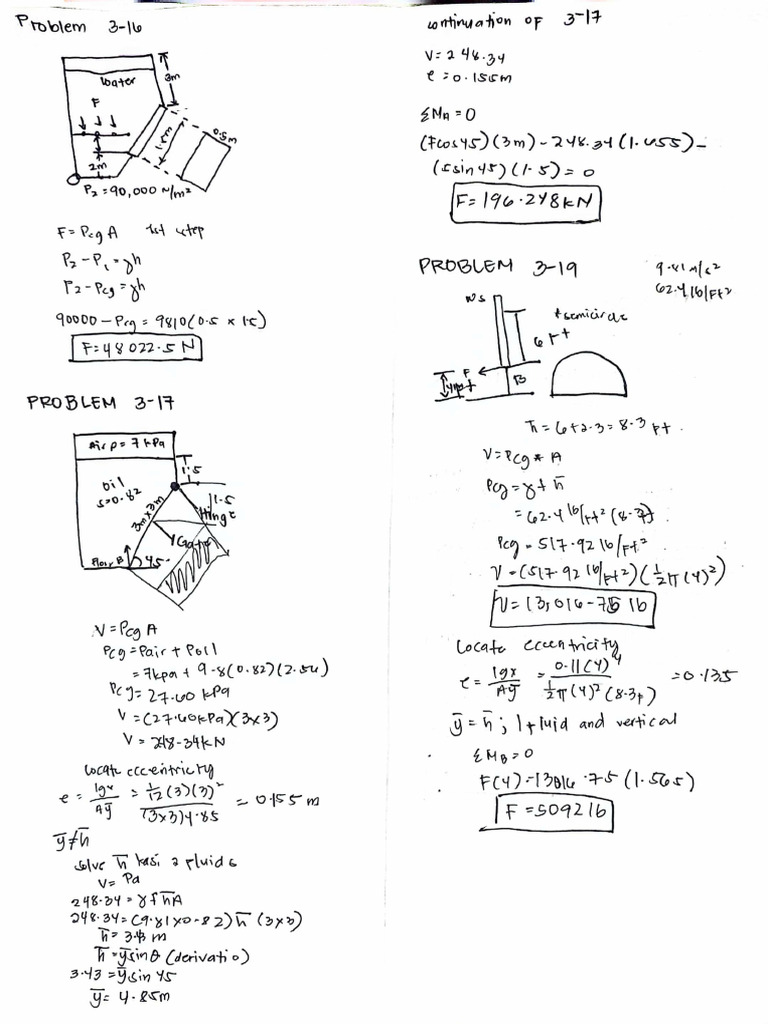 Problem 3-16
3m
water
F
1.5m
0.5m
2m
P2 = 90,000 N/m²
F = Pcg A 1st step
P2 - P1 = γh
P2 - Pcg = γh
90000 - Pcg = 9810(0.5 × 1.5)
F = 48022.5 N
PROBLEM 3-17
air p = 7 kPa
1.5
oil
s=0.82
3m x 3m
1.5
Hinge
Gate
Floor B
45
V = Pcg A
Pcg = Pair + Poil
= 7kpa + 9.8(0.82)(2.56)
Pcg = 27.60 kPa
V = (27.60kPa)(3×3)
V = 248.34kN
Locate eccentricity
e = Igx/Aȳ = 1/12(3)(3)²/(3×3)4.85 = 0.155 m
ȳ ≠ h̄
solve h̄ kasi 2 fluids
V = Pa
248.34 = γf h̄A
248.34 = (9.81×0.82) h̄ (3×3)
h̄ = 3.43 m
h̄ = ȳ sinθ (derivatio)
3.43 = ȳ sin 45
ȳ = 4.85m
continuation OF 3-17
V = 248.34
e = 0.155m
ΣMA = 0
(Fcos45)(3m) - 248.34(1.655) -
(5sin45)(1.5) = 0
F = 196.248kN
PROBLEM 3-19
9.81 m/s²
62.4 lb/ft²
WS
*semicircle
6 ft
F
4ft
B
h̄ = 6+2.3 = 8.3 ft.
V = Pcg * A
Pcg = γf h̄
= 62.4 lb/ft² (8.3)
Pcg = 517.92 lb/ft²
V = (517.92 lb/ft²)(½π(4)²)
V = 13,016.75 lb
Locate eccentricity
e = Igx/Aȳ = 0.11(4)⁴/½π(4)²(8.3) = 0.135
ȳ = h̄; 1 fluid and vertical
ΣMB = 0
F(4) - 13016.75 (1.565)
F = 5092 lb